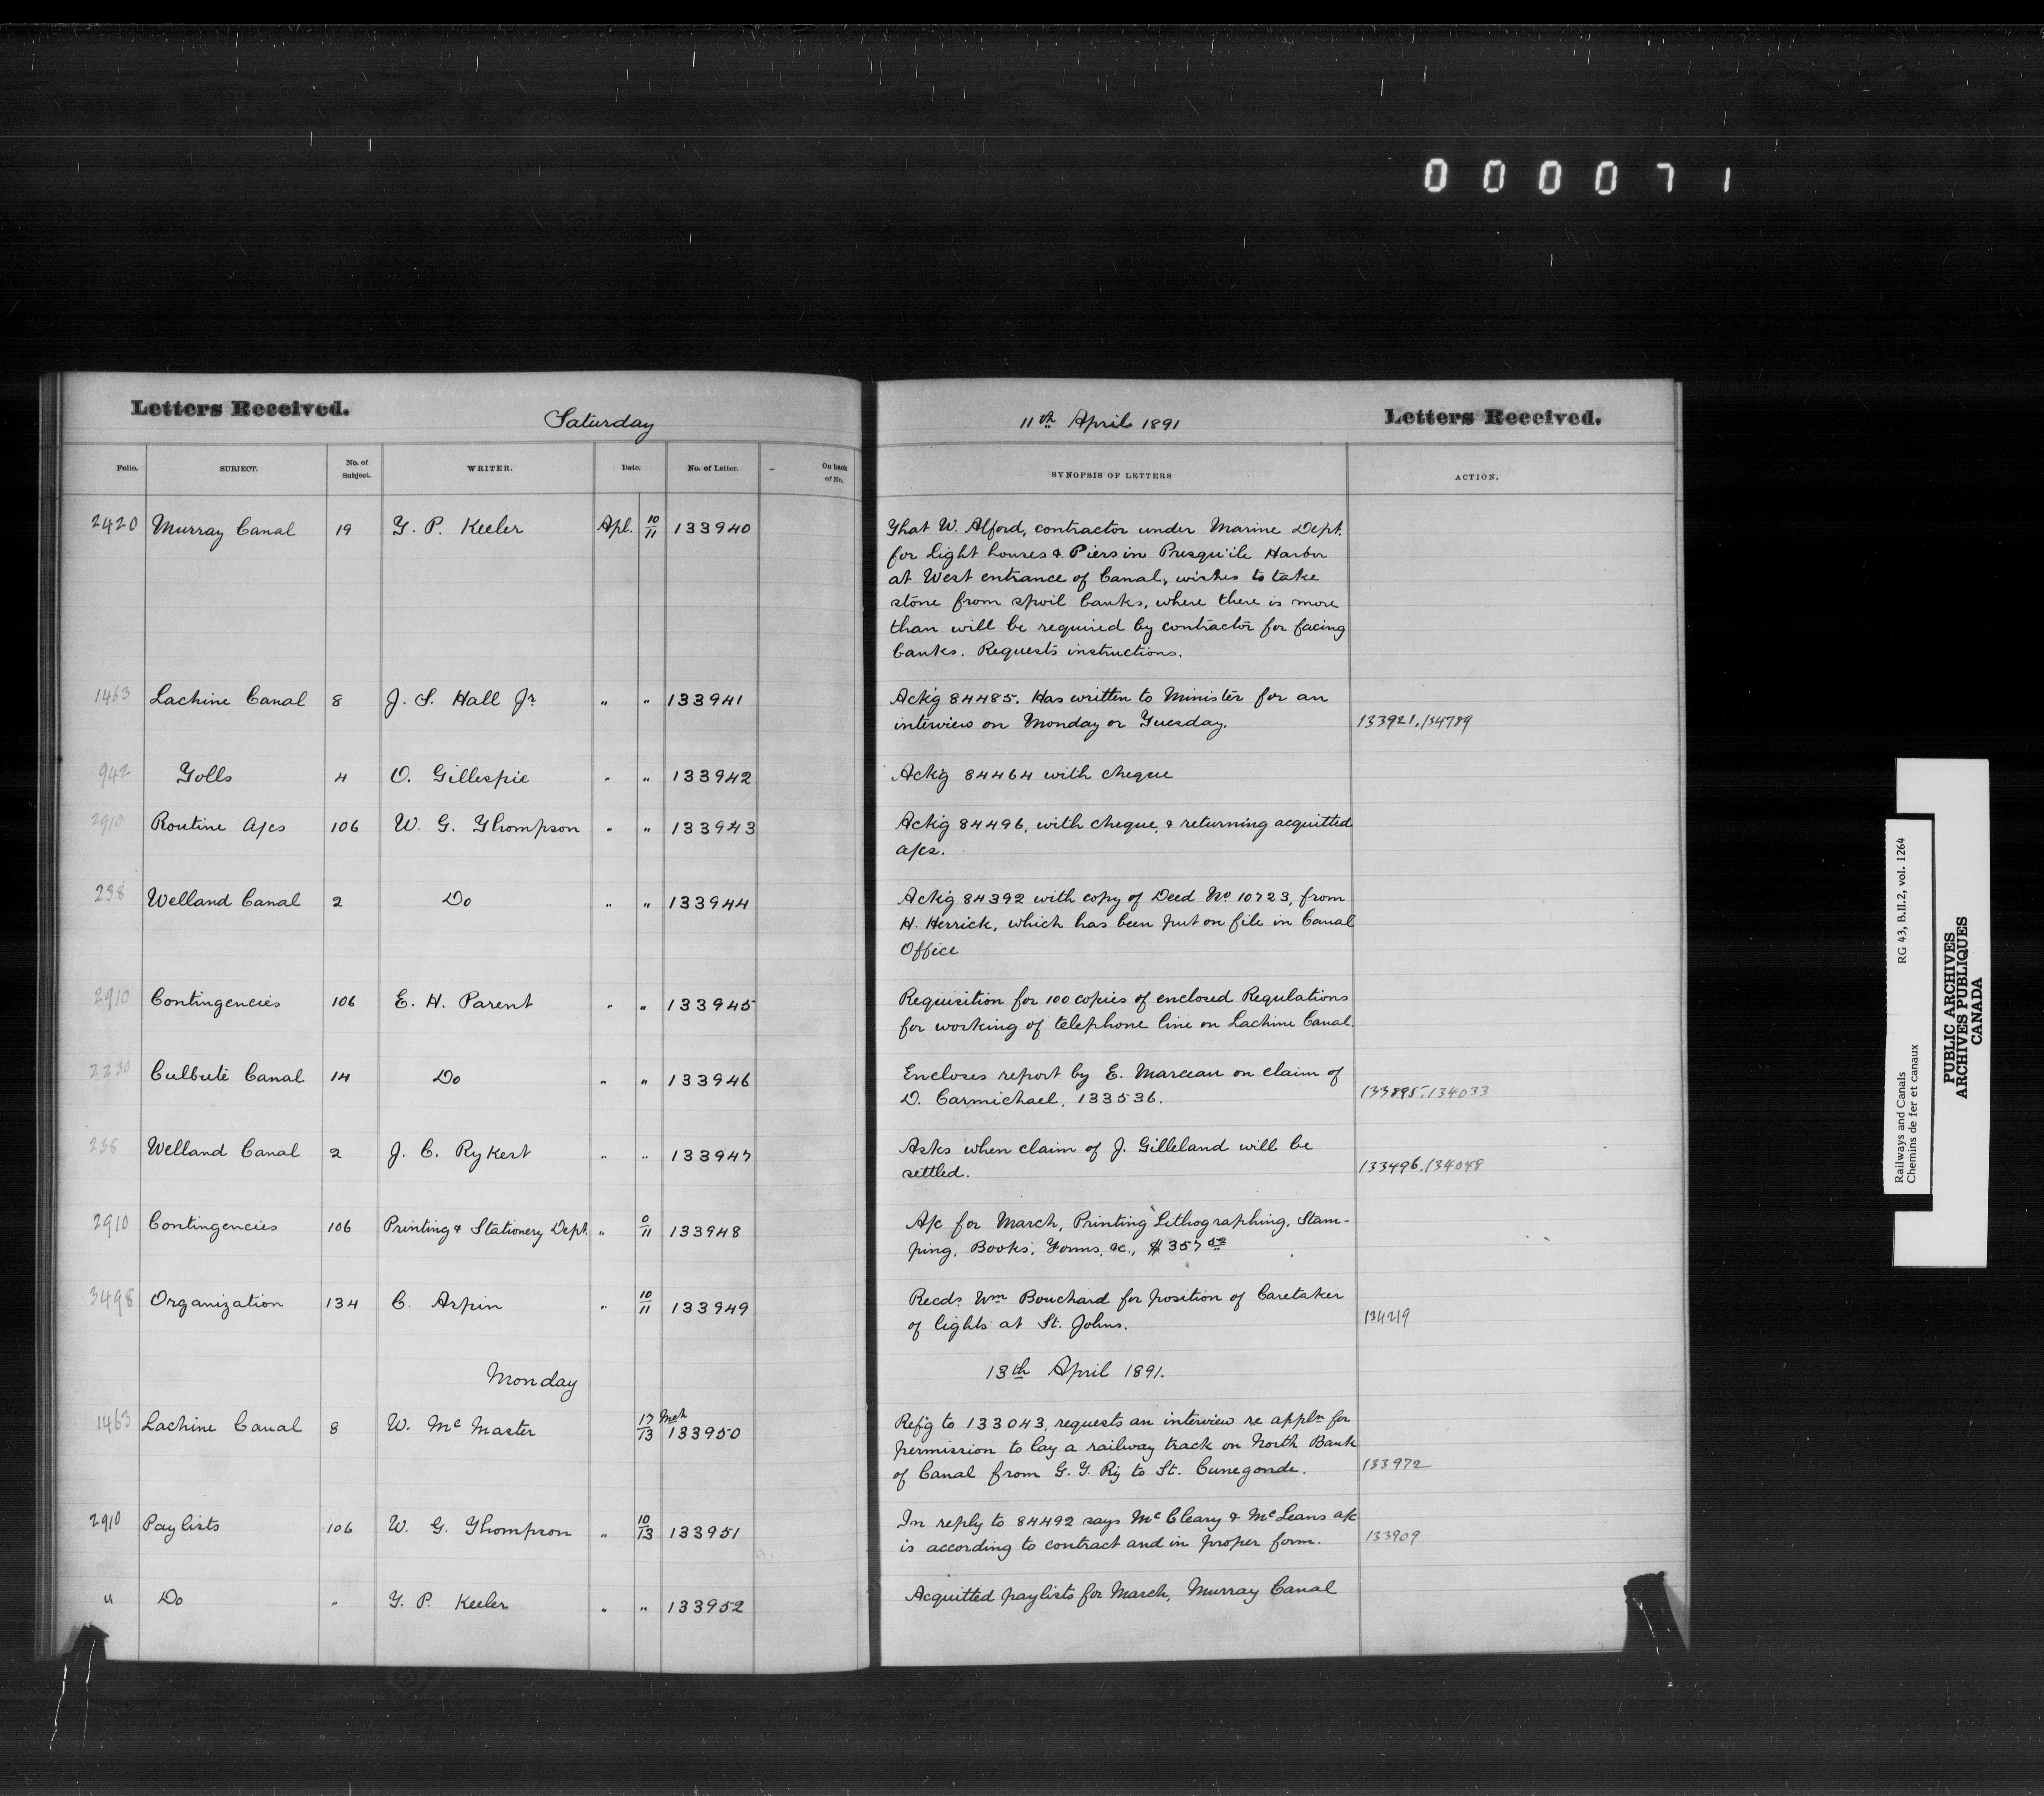 000071
Letters Received.
Saturday
11th April 1891
Letters Received.
Folio. SUBJECT. No. of Subject. WRITER. Date. No. of Letter. On back of No. SYNOPSIS OF LETTERS ACTION.
2420 Murray Canal 19 T. P. Keeler Apl. 10/11 133940 That W. Alford, contractor under Marine Dept.
for light houses & Piers in Presqu'ile Harbor
at West entrance of Canal, wishes to take
stone from spoil banks, where there is more
than will be required by contractor for facing
banks. Requests instructions.
1463 Lachine Canal 8 J. S. Hall Jr. " " 133941 Ackg 84485. Has written to Minister for an
interview on Monday or Tuesday. 133921.134789
942 Tolls 4 O. Gillespie " " 133942 Ackg 84464 with cheque
2910 Routine A/cs 106 W. G. Thompson " " 133943 Ackg 84496, with cheque, & returning acquitted
a/cs.
238 Welland Canal 2 Do " " 133944 Ackg 84392 with copy of Deed No 10723, from
H. Herrick, which has been put on file in Canal
Office
2910 Contingencies 106 E. H. Parent " " 133945 Requisition for 100 copies of enclosed Regulations
for working of telephone line on Lachine Canal.
2230 Culbute Canal 14 Do " " 133946 Encloses report by E. Marceau on claim of
D. Carmichael, 133536. 133895.134033
238 Welland Canal 2 J. C. Rykert " " 133947 Asks when claim of J. Gilleland will be
settled. 133496.134048
2910 Contingencies 106 Printing & Stationery Dept. " 0/11 133948 A/c for March, Printing Lithographing, Stam-
ping, Books, Forms, &c., $357
3498 Organization 134 C. Arpin " 10/11 133949 Recds. Wm Bouchard for position of Caretaker
of lights at St. Johns. 134219
Monday 13th April 1891.
1463 Lachine Canal 8 W. McMaster 17 Mch/13 133950 Refg to 133043, requests an interview re appln for
permission to lay a railway track on North Bank
of Canal from G. T. Ry to St. Cunegonde. 133972
2910 Paylists 106 W. G. Thompson " 10/13 133951 In reply to 84492 says McCleary & McLeans a/c
is according to contract and in proper form. 133909
" Do " T. P. Keeler " " 133952 Acquitted paylists for March, Murray Canal
Railways and Canals RG 43, B.II.2, vol. 1264
Chemins de fer et canaux
PUBLIC ARCHIVES
ARCHIVES PUBLIQUES
CANADA